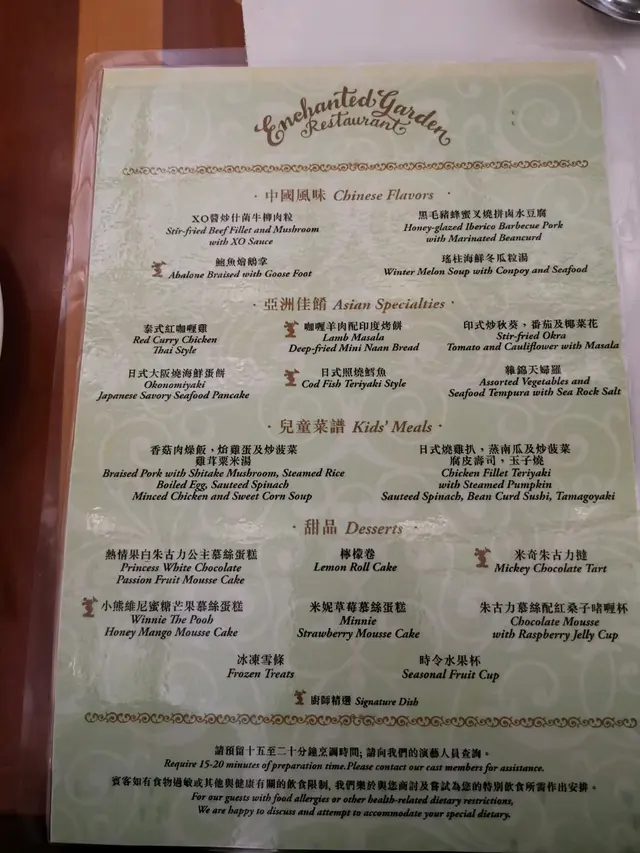 Enchanted Garden
Restaurant
· 中國風味 Chinese Flavors ·
XO醬炒什菌牛柳肉粒
Stir-fried Beef Fillet and Mushroom
with XO Sauce
黑毛豬蜂蜜叉燒拼鹵水豆腐
Honey-glazed Iberico Barbecue Pork
with Marinated Beancurd
鮑魚燴鵝掌
Abalone Braised with Goose Foot
瑤柱海鮮冬瓜粒湯
Winter Melon Soup with Conpoy and Seafood
· 亞洲佳餚 Asian Specialties ·
泰式紅咖喱雞
Red Curry Chicken
Thai Style
咖喱羊肉配印度烤餅
Lamb Masala
Deep-fried Mini Naan Bread
印式炒秋葵、番茄及椰菜花
Stir-fried Okra
Tomato and Cauliflower with Masala
日式大阪燒海鮮蛋餅
Okonomiyaki
Japanese Savory Seafood Pancake
日式照燒鱈魚
Cod Fish Teriyaki Style
雜錦天婦羅
Assorted Vegetables and
Seafood Tempura with Sea Rock Salt
· 兒童菜譜 Kids' Meals ·
香菇肉燥飯，焓雞蛋及炒菠菜
雞茸粟米湯
Braised Pork with Shitake Mushroom, Steamed Rice
Boiled Egg, Sauteed Spinach
Minced Chicken and Sweet Corn Soup
日式燒雞扒，蒸南瓜及炒菠菜
腐皮壽司，玉子燒
Chicken Fillet Teriyaki
with Steamed Pumpkin
Sauteed Spinach, Bean Curd Sushi, Tamagoyaki
· 甜品 Desserts ·
熱情果白朱古力公主慕絲蛋糕
Princess White Chocolate
Passion Fruit Mousse Cake
檸檬卷
Lemon Roll Cake
米奇朱古力撻
Mickey Chocolate Tart
小熊維尼蜜糖芒果慕絲蛋糕
Winnie The Pooh
Honey Mango Mousse Cake
米妮草莓慕絲蛋糕
Minnie
Strawberry Mousse Cake
朱古力慕絲配紅桑子啫喱杯
Chocolate Mousse
with Raspberry Jelly Cup
冰凍雪條
Frozen Treats
時令水果杯
Seasonal Fruit Cup
廚師精選 Signature Dish
請預留十五至二十分鐘烹調時間; 請向我們的演藝人員查詢。
Require 15-20 minutes of preparation time.Please contact our cast members for assistance.
賓客如有食物過敏或其他與健康有關的飲食限制, 我們樂於與您商討及嘗試為您的特別飲食所需作出安排。
For our guests with food allergies or other health-related dietary restrictions,
We are happy to discuss and attempt to accommodate your special dietary.